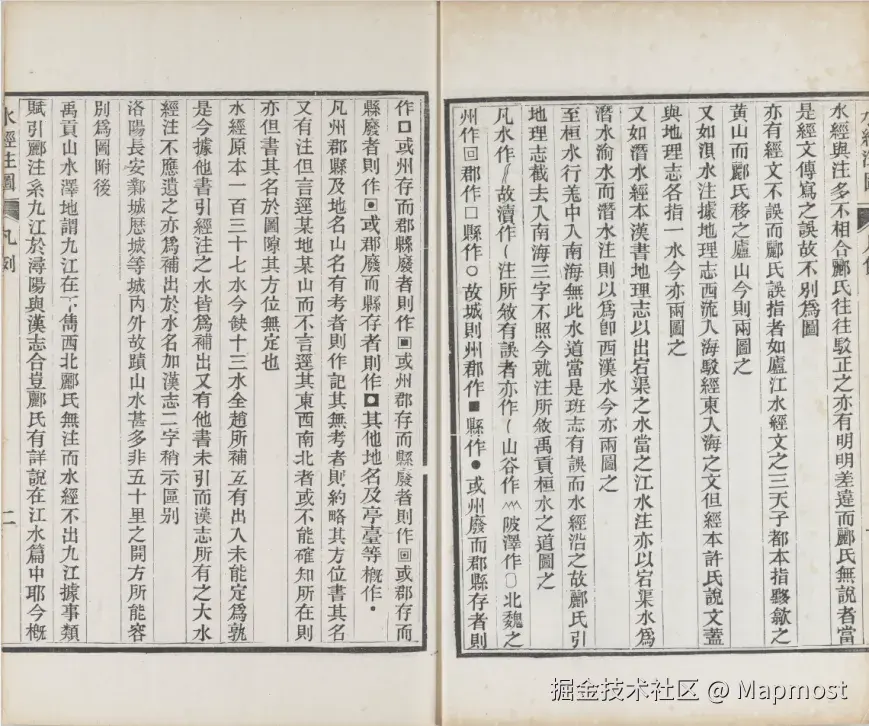 水經與注多不相合酈氏往往駁正之亦有明明差違而酈氏無說者當
是經文傳寫之誤故不別爲圖
亦有經文不誤而酈氏誤指者如廬江水經文之三天子都本指黟歙之
黃山而酈氏移之廬山今則兩圖之
又如浿水注據地理志西流入海駁經東入海之文但經本許氏說文蓋
與地理志各指一水今亦兩圖之
又如潛水經本漢書地理志以出宕渠之水當之江水注亦以宕渠水爲
潛水渝水而潛水注則以爲卽西漢水今亦兩圖之
至桓水行羌中入南海無此水道當是班志有誤而水經沿之故酈氏引
地理志截去入南海三字不照今就注所敘禹貢桓水之道圖之
凡水作故瀆作注所敘有誤者亦作山谷作陂澤作北魏之
州作回郡作□縣作○故城則州郡作■縣作●或州廢而郡縣存者則
作或州存而郡縣廢者則作▣或州郡存而縣廢者則作回或郡存而
縣廢者則作或郡廢而縣存者則作其他地名及亭臺等槪作•
凡州郡縣及地名山名有考者則作記其無考者則約略其方位書其名
又有注但言逕某地某山而不言逕其東西南北者或不能確知所在則
亦但書其名於圖隙其方位無定也
水經原本一百三十七水今缺十三水全趙所補互有出入未能定爲孰
是今據他書引經注之水皆爲補出又有他書未引而漢志所有之大水
經注不應遺之亦爲補出於水名加漢志二字稍示區別
洛陽長安鄴城厯城等城內外故蹟山水甚多非五十里之開方所能容
別爲圖附後
禹貢山水澤地謂九江在下雋西北酈氏無注而水經不出九江據事類
賦引酈注系九江於潯陽與漢志合豈酈氏有詳說在江水篇中耶今槪
水經注圖 凡例 二
掘金技术社区 @ Mapmost